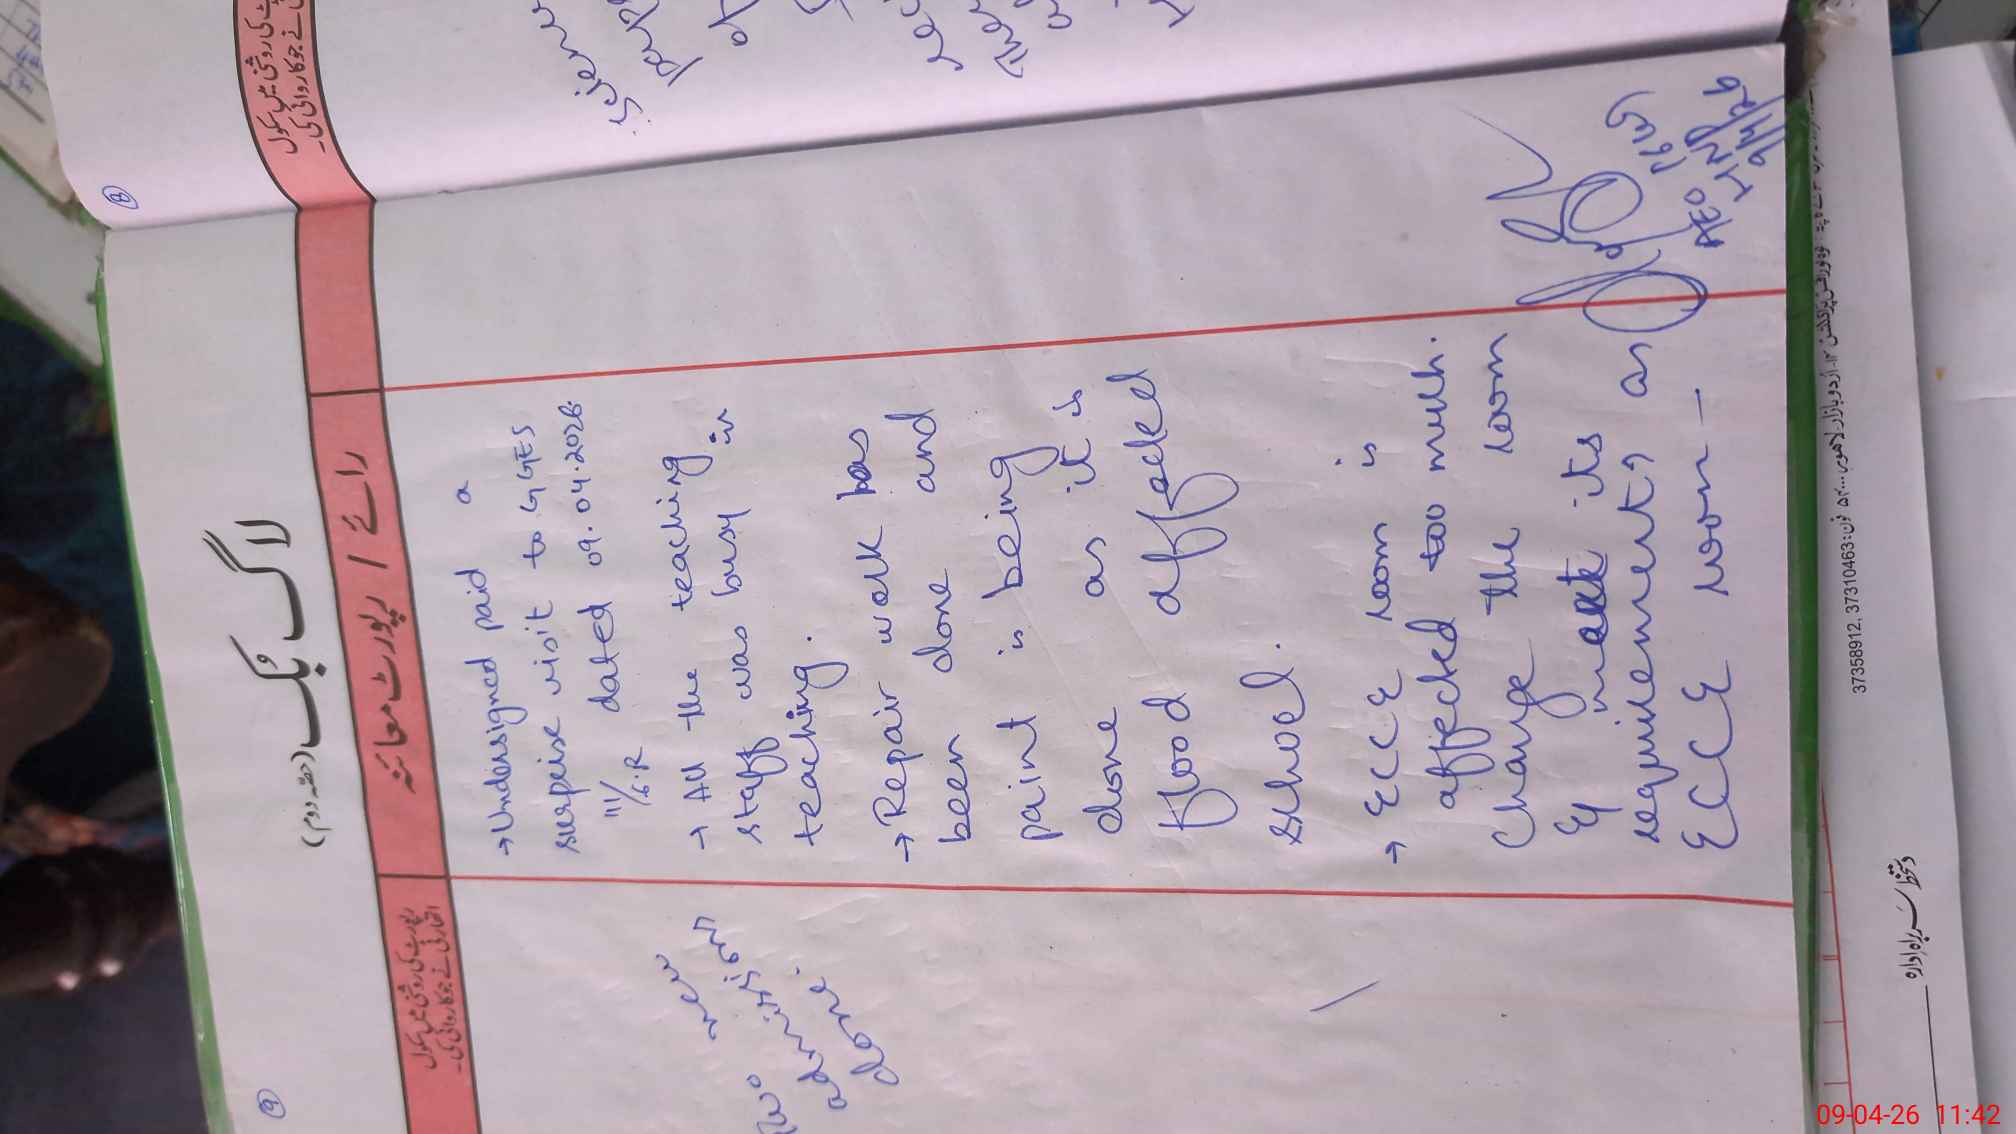 9
لاگ بُک (حصہ دوم)
رپورٹ کی روشنی میں سکول
اتھارٹی نے جو کارروائی کی۔
رائے / رپورٹ معائنہ
→ Undersigned paid a
surprise visit to GGES
111/6.R dated 09.04.2026.
→ All the teaching
staff was busy in
teaching.
→ Repair work has
been done and
paint is being
done as it is
flood affected
school.
→ ECCE room is
affected too much.
Change the room
& meet its
requirements as
ECCE room —
Two new
admission
done.
AEO
9/4/26
8
رپورٹ کی روشنی میں سکول
اتھارٹی نے جو کارروائی کی۔
دستخط سربراہ ادارہ
37358912, 37310463
09-04-26 11:42